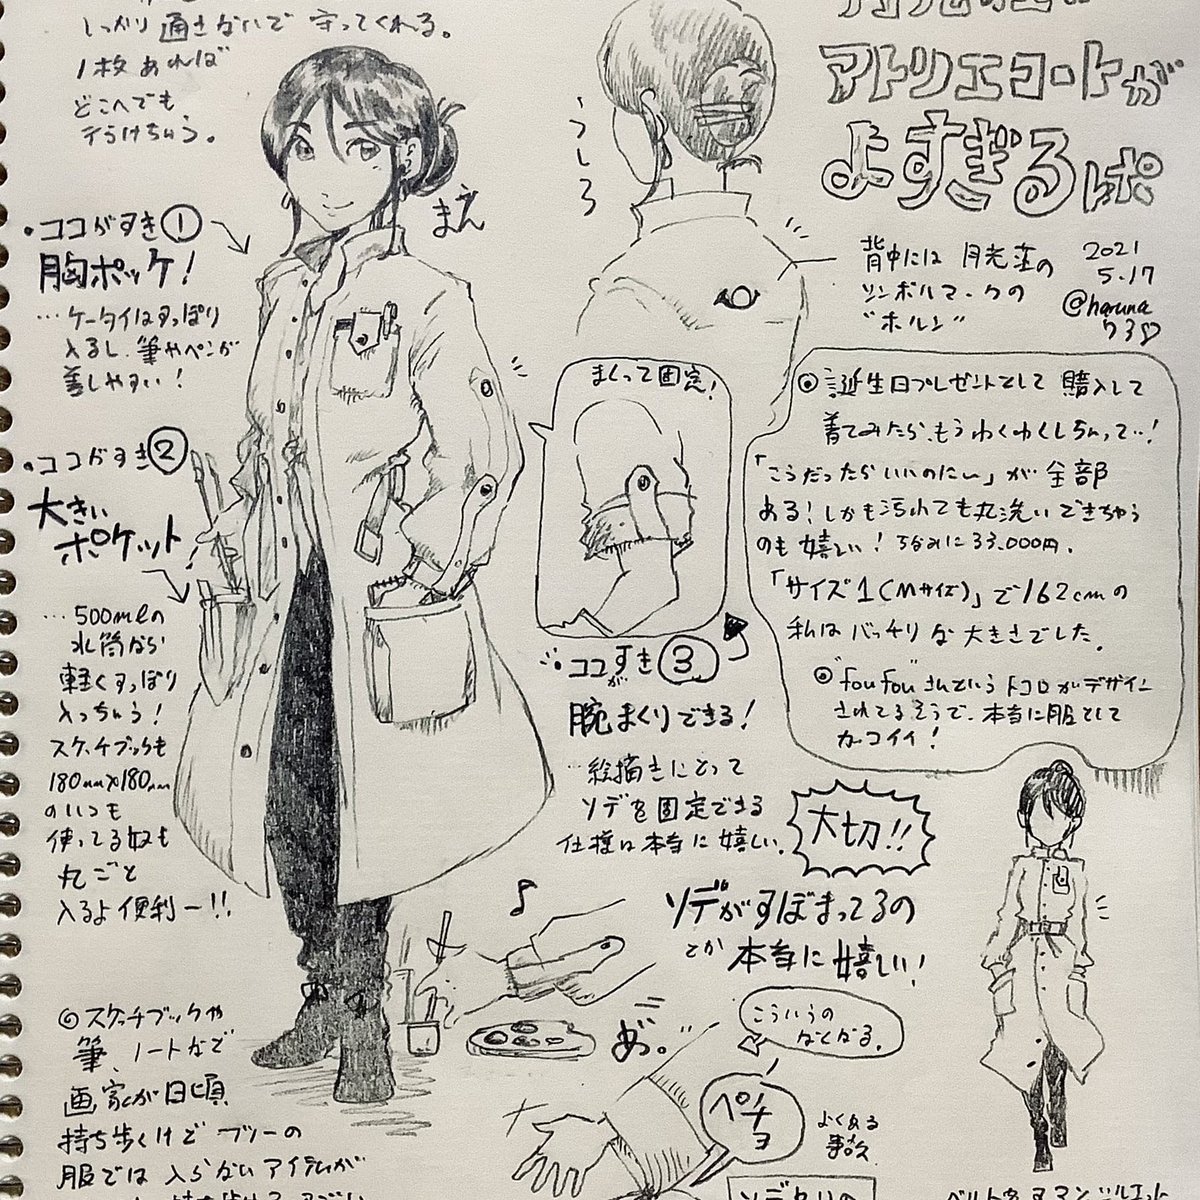 しっかり通さないで守ってくれる。
1枚あれば
どこへでも
アトリエコートが
よすぎるレポ
2021
5.17
@haruna
背中には月光荘の
シンボルマークの
"ホルン"
まえ
うしろ
・ココがすき①
胸ポッケ!
…ケータイはすっぽり
入るし、筆やペンが
差しやすい!
・ココがすき②
大きい
ポケット
…500mlの
水筒なら
軽くすっぽり
入っちゃう!
スケッチブックも
180mm×180mm
のいつも
使ってる奴も
丸ごと
入るよ便利ー!!
まくって固定!
・ココがすき③
腕まくりできる!
…絵描きにとって
ソデを固定できる
仕様は本当に嬉しい。
大切!!
◎誕生日プレゼントとして購入して
着てみたら、もうわくわくしちゃって…!
「こうだったらいいのにぃ」が全部
ある!しかも汚れても丸洗いできちゃう
のも嬉しい!ちなみに33,000円。
「サイズ1(Mサイズ)」で162cmの
私はバッチリな大きさでした。
◎"foufou"さんというトコロがデザイン
されてるそうで、本当に服として
カッコイイ!
ソデがすぼまってるの
とか本当に嬉しい!
こういうの
なくなる。
ペチョ
よくある
事故
◎スケッチブックや
筆、ノートなど
画家が日頃
持ち歩くけどフツーの
服では入らないアイテムが